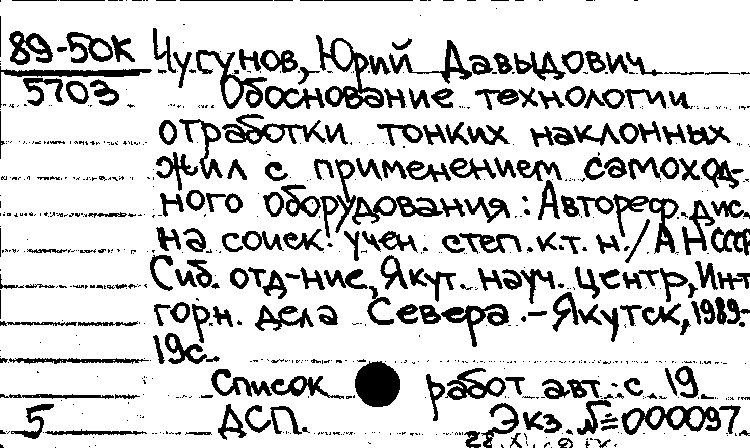 89-50К Чугунов, Юрий Давыдович.
5703 Обоснование технологии
отработки тонких наклонных
жил с применением самоход-
ного оборудования : Автореф. дис.
на соиск. учен. степ. к.т.н. / АН СССР
Сиб. отд-ние, Якут. науч. центр, Ин-т
горн. дела Севера. - Якутск, 1989.-
19с.
Список работ авт.: с. 19.
5 ДСП. Экз. №=000097.